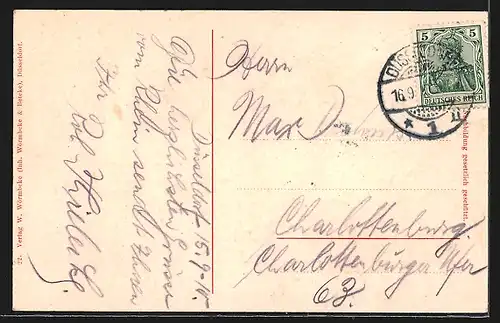 22. Verlag W. Wörmbcke (Inh. Wörmbcke & Reteke), Düsseldorf.
Düsseldorf 15.9.10.
Die herzlichsten Grüsse
vom Rhein sendet Ihnen
Ihr
Rob.
Herrn
Max
Charlottenburg.
Charlottenburger Ufer
63.
5 5
DEUTSCHES REICH
16.9.
* 1
gesetzlich geschützt.